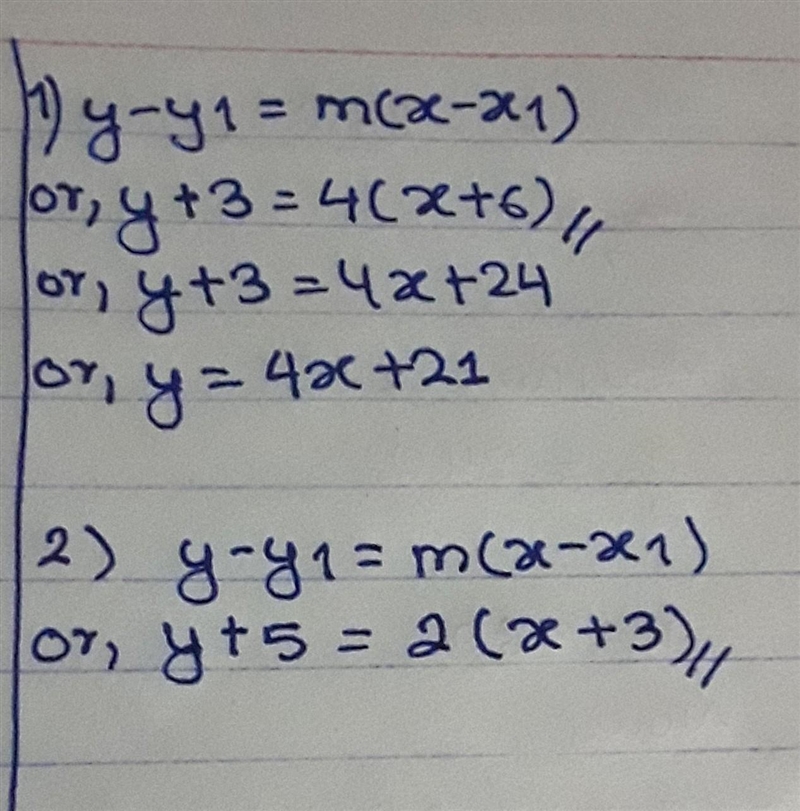 1) y-y1 = m(x-x1)
or, y+3 = 4(x+6)//
or, y+3 = 4x+24
or, y = 4x+21
2) y-y1 = m(x-x1)
or, y+5 = 2(x+3)//